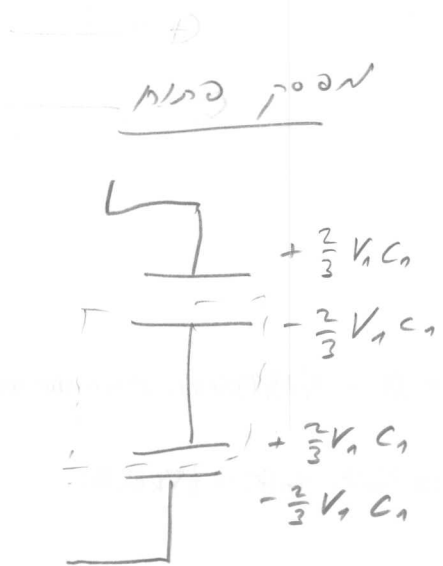 מפסק פתוח
+ 2/3 V₁ C₁
- 2/3 V₁ C₁
+ 2/3 V₁ C₁
- 2/3 V₁ C₁